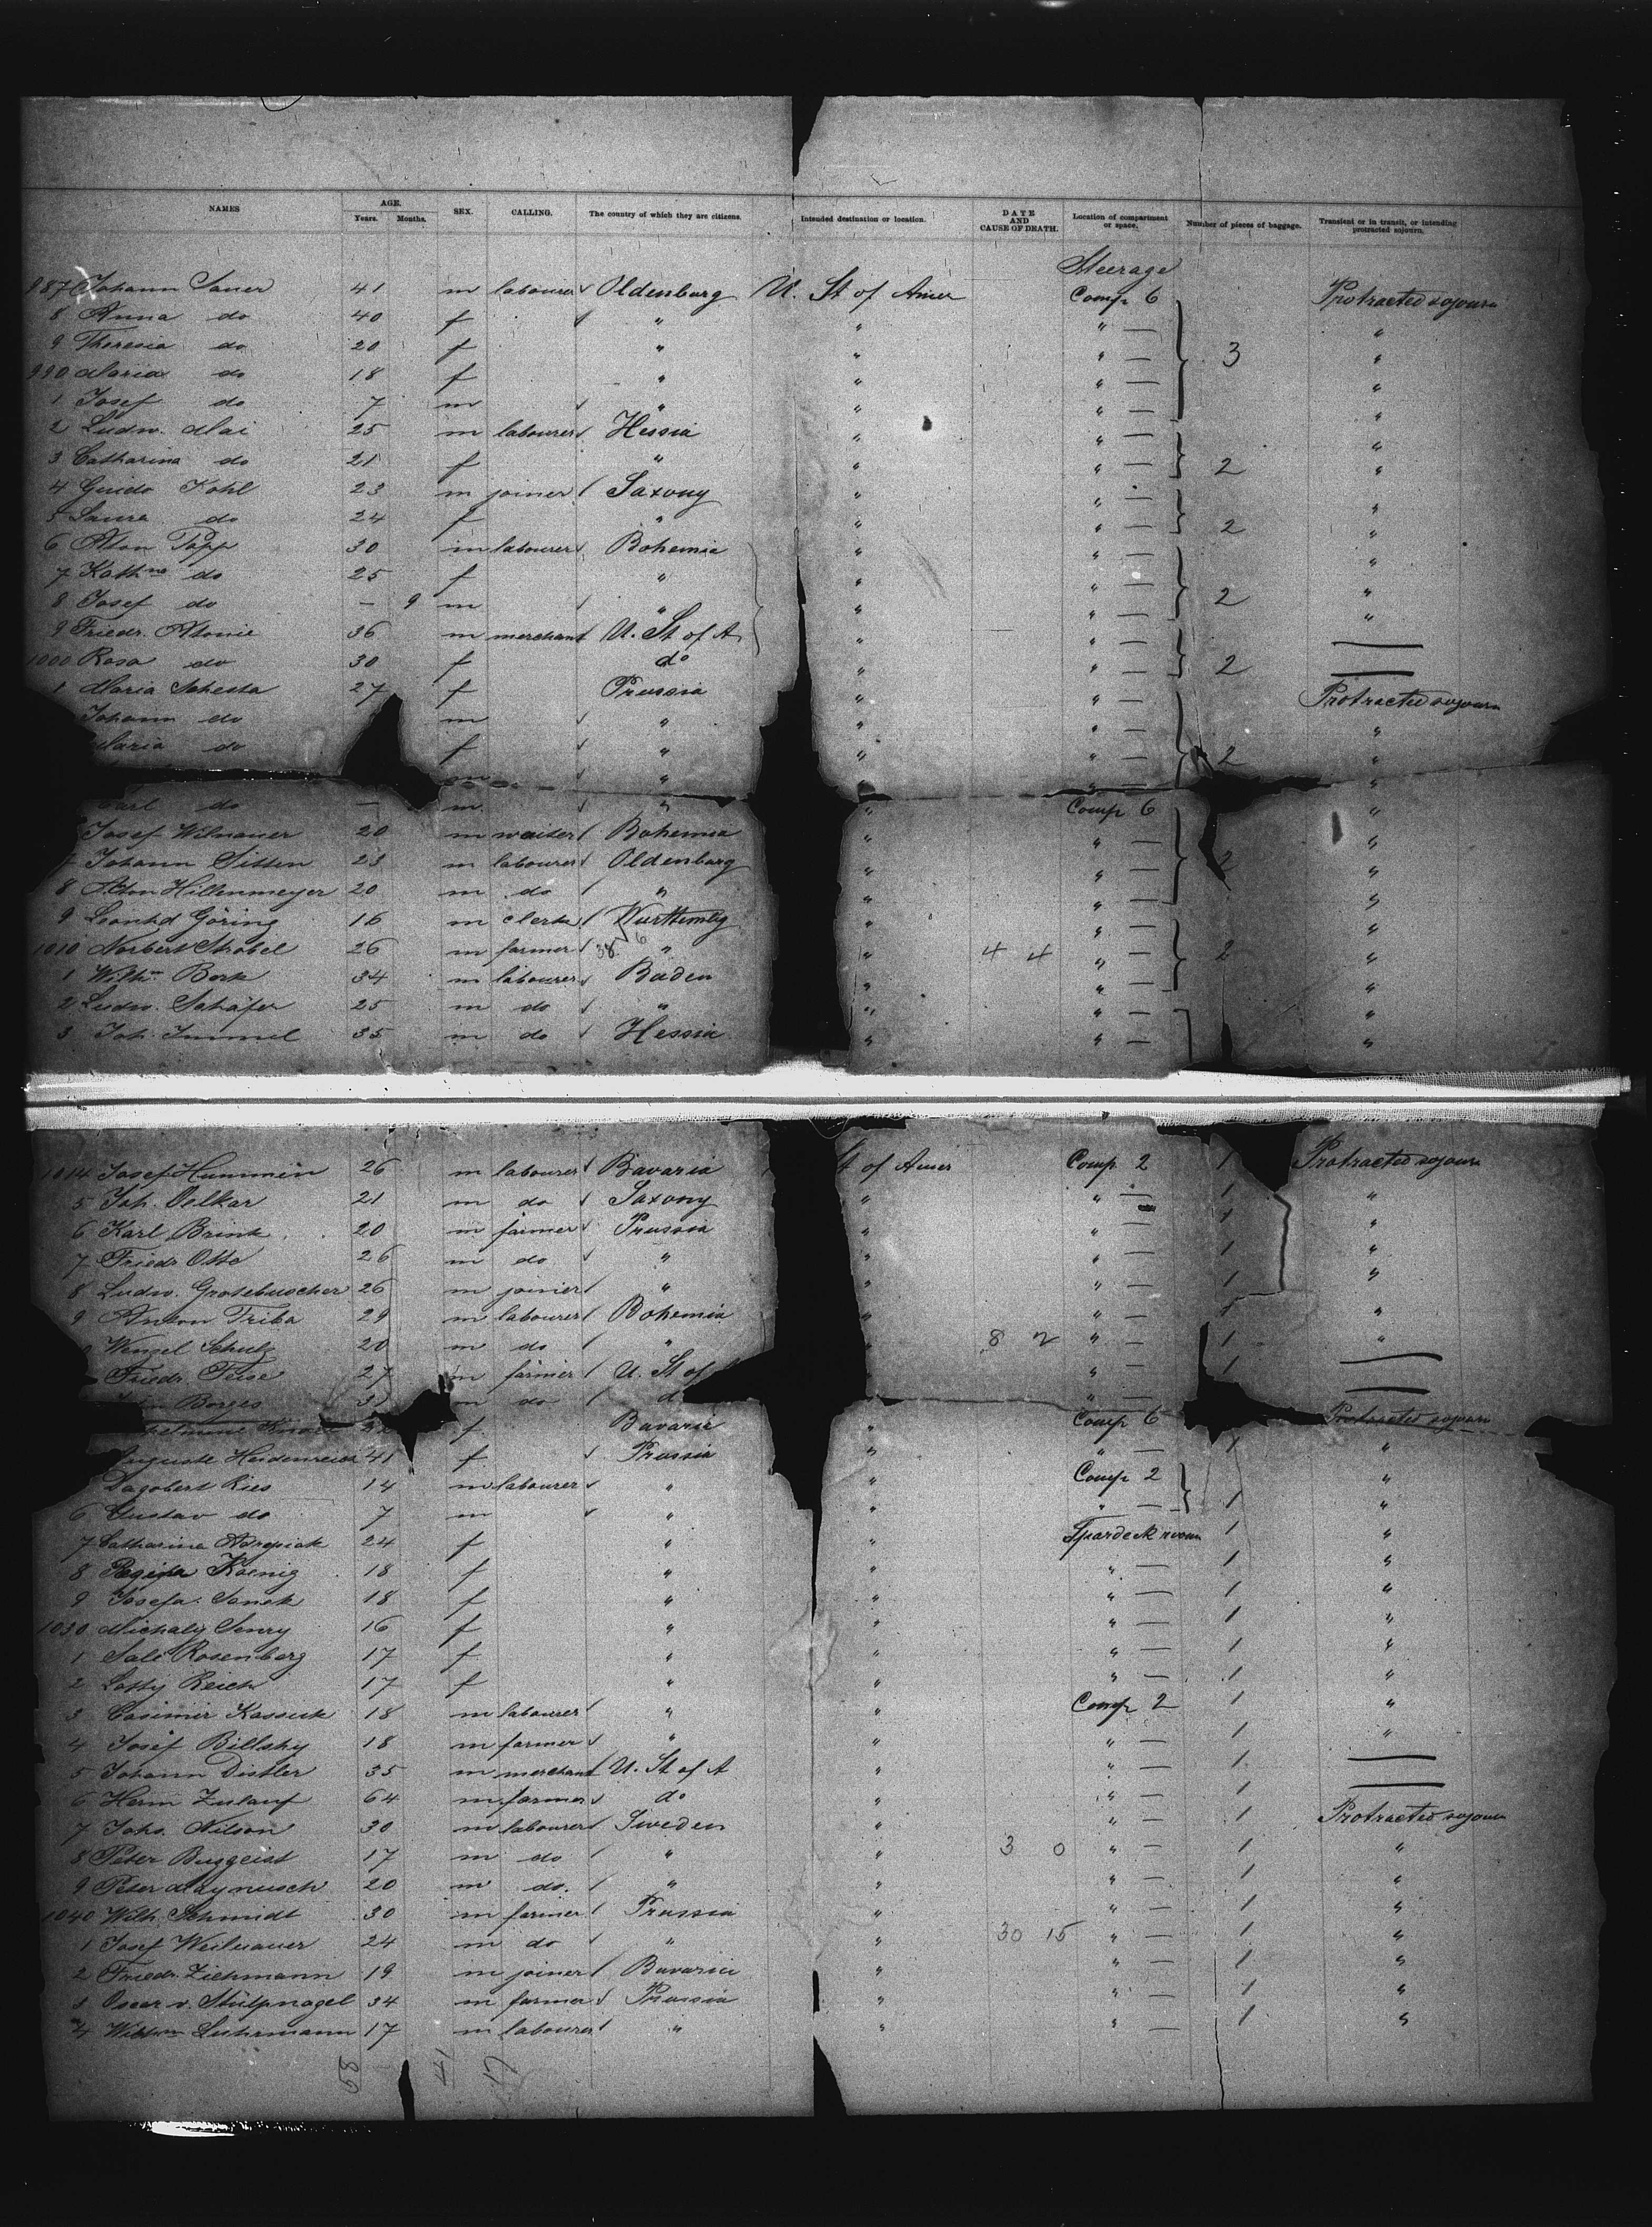 NAMES AGE. Years. Months. SEX. CALLING. The country of which they are citizens. Intended destination or location. DATE AND CAUSE OF DEATH. Location of compartment or space. Number of pieces of baggage. Transient or in transit, or intending protracted sojourn.
Steerage
987 Johann Sauer 41 m labourer Oldenburg U. St of Amer Comp 6 Protracted sojourn
8 Anna do 40 f " " " — "
9 Theresia do 20 f " " " — 3 "
990 Maria do 18 f " " " — "
1 Josef do 7 m " " " — "
2 Ludw. Mai 25 m labourer Hessia " " — "
3 Catharina do 21 f " " " — 2 "
4 Guido Kohl 23 m joiner Saxony " " — "
5 Laura do 24 f " " " — 2 "
6 Popp 30 m labourer Bohemia " " — "
7 Kathne do 25 f " " " — "
8 Josef do — 9 m " " " — 2 "
9 Friedr. 36 m merchant U. St of A " " — —
1000 Rosa do 30 f do " " — 2 —
1 Maria 27 f Prussia " " — Protracted sojourn
Johann do m " " " — "
Maria do f " " " — 2 "
m " " "
Carl do — m " " Comp 6 "
Josef 20 m waiter Bohemia " " — "
Johann Sitten 23 m labourer Oldenburg " " — 2 "
8 Hillenmeyer 20 m do " " " — "
9 Leonhd Göring 16 m clerk Wurttembg " " — "
1010 Norbert Strobel 26 m farmer 38 6 " " 4 4 " — 2 "
1 Wilhm Bork 34 m labourer Baden " " — "
2 Ludw. Schäfer 25 m do " " " — "
3 Joh. Immel 35 m do Hessia " " — "
1014 Josef Hummin 26 m labourer Bavaria St of Amer Comp 2 1 Protracted sojourn
5 Joh. Oelkar 21 m do Saxony " " — 1 "
6 Karl Brink 20 m farmer Prussia " " — 1 "
7 Friedr Otto 26 m do " " " — 1 "
8 Ludw. Grotebuscher 26 m joiner " " " — 1 "
9 Anton Triba 29 m labourer Bohemia " " — 1 "
Wenzel Schulz 20 m do " " 8 2 " — 1 "
Friedr. 27 m farmer U. St of " " — 1 —
Borges m do " — —
f Bavaria " Comp 6 Protracted sojourn
Auguste Heidenreich 41 f Prussia " " — 1 "
Dagobert Ries 14 m labourer " " Comp 2 "
6 Gustav do 7 m " " " — 1 "
7 Catharina 24 f " " Spardeck room 1 "
8 Koenig 18 f " " " — 1 "
9 Josefa Sanek 18 f " " " — 1 "
1030 Michaly 16 f " " " — 1 "
1 Sali Rosenberg 17 f " " " — 1 "
2 Reich 17 f " " " — 1 "
3 Casimir 18 m labourer " " Comp 2 1 "
4 Josef Billsky 18 m farmer " " " — 1 "
5 Johann Distler 35 m merchant U. St of A " " — 1 —
6 Herm Zulauf 64 m farmer do " " — 1 —
7 Johs. Nilson 30 m labourer Sweden " " — 1 Protracted sojourn
8 Peter Buggeist 17 m do " " 3 0 " — 1 "
9 Peter 20 m do. " " " — 1 "
1040 Wilh. Schmidt 30 m farmer Prussia " " — 1 "
1 Josef 24 m do " " 30 15 " — 1 "
2 Friedr. Ziehmann 19 m joiner Bavaria " " — 1 "
3 Oscar v. Stülpnagel 34 m farmer Prussia " " — 1 "
4 Wilhm Luhrmann 17 m labourer " " " — 1 "
59 41 17